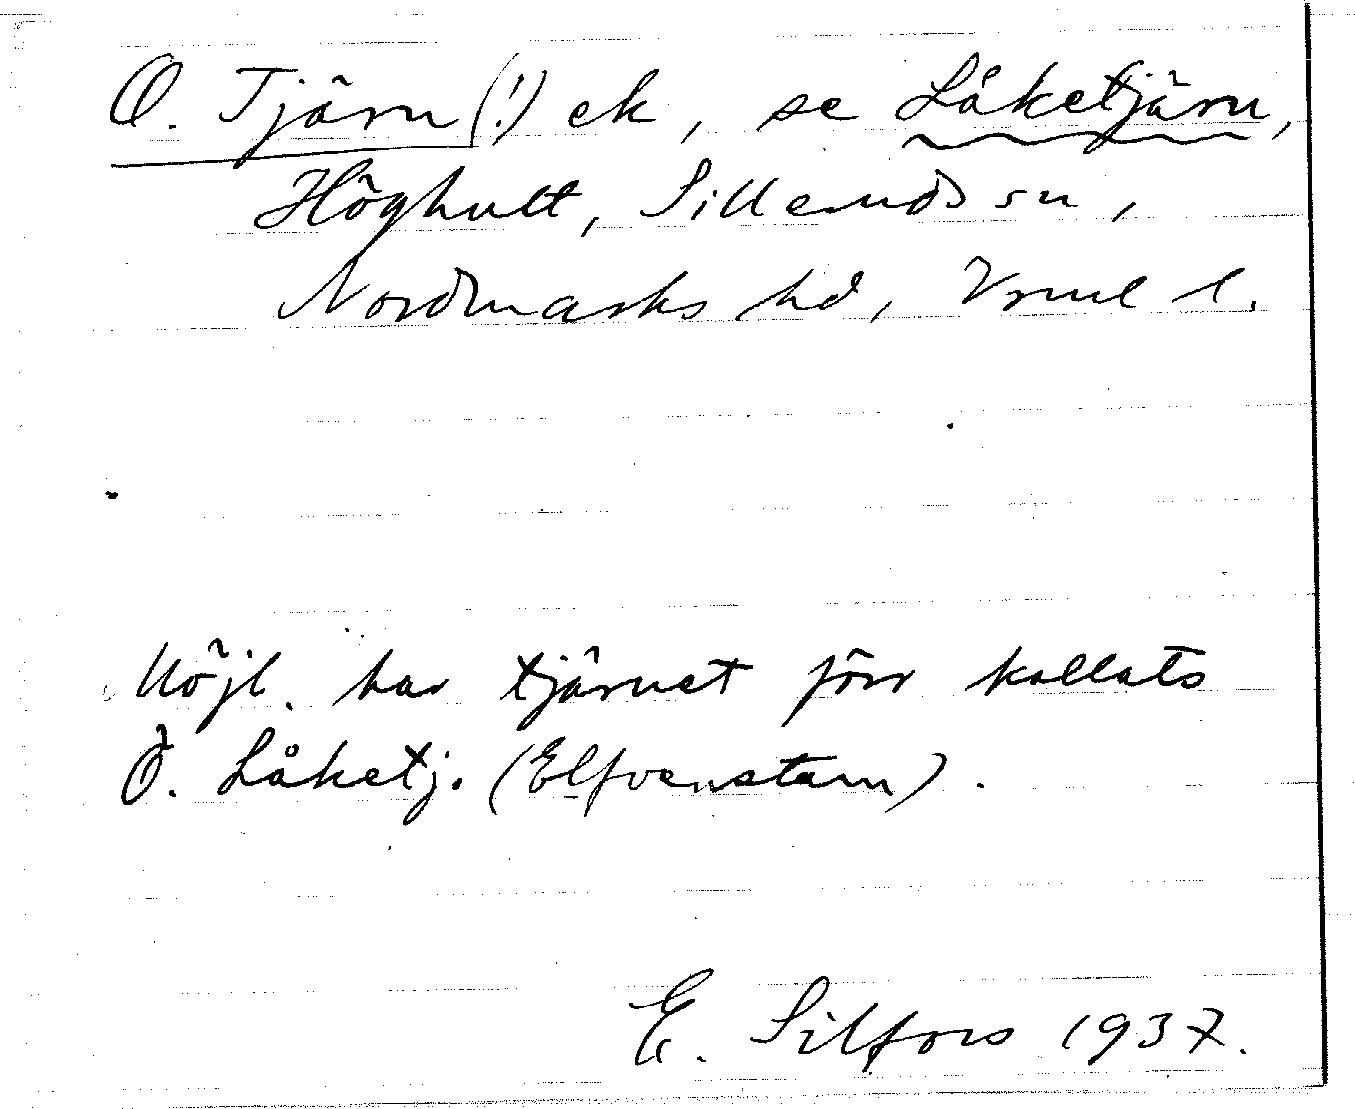 Ö. Tjärn (!) ek, se Låketjärn,
Höghult, Silleruds sn,
Nordmarks hd, Vrml l.
Möjl. har tjärnet förr kallats
Ö. Låketj. (Elfvenstam).
E. Silfors 1937.